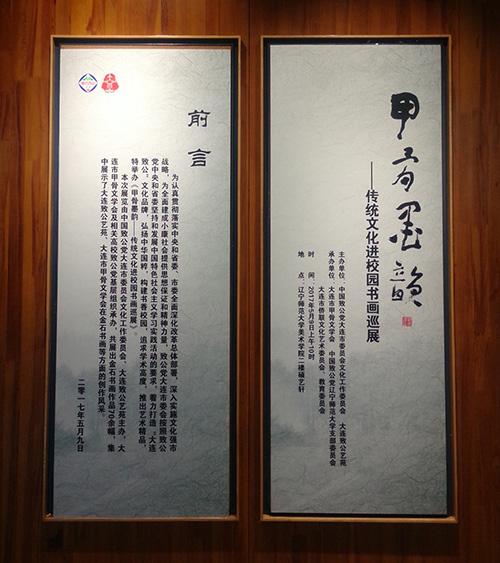 甲骨墨韻
——传统文化进校园书画巡展
主办单位：中国致公党大连市委员会文化工作委员会　大连致公艺苑
承办单位：大连市甲骨文学会　中国致公党辽宁师范大学支部委员会
大连市侨联文化艺术委员会、教育委员会
时　间：2017年5月9日上午10时
地　点：辽宁师范大学美术学院二楼硕艺轩
前言
为认真贯彻落实中央和省委、市委全面深化改革总体部署，深入实施文化强市
战略，为全面建成小康社会提供思想保证和精神力量，致公党大连市委会按照致公
党中央和省委坚持和发展中国特色社会主义学习实践活动的要求，着力打造“大连
致公”文化品牌，弘扬中华国粹，构建书香校园，追求学术高度，推出艺术精品，
特举办《甲骨墨韵——传统文化进校园书画巡展》。
本次展览由中国致公党大连市委员会文化工作委员会、大连致公艺苑主办，大
连市甲骨文学会及相关高校致公党基层组织承办，共展出金石书画作品70余幅，集
中展示了大连致公艺苑、大连市甲骨文学会在金石书画等方面的创作风采。
二零一七年五月九日